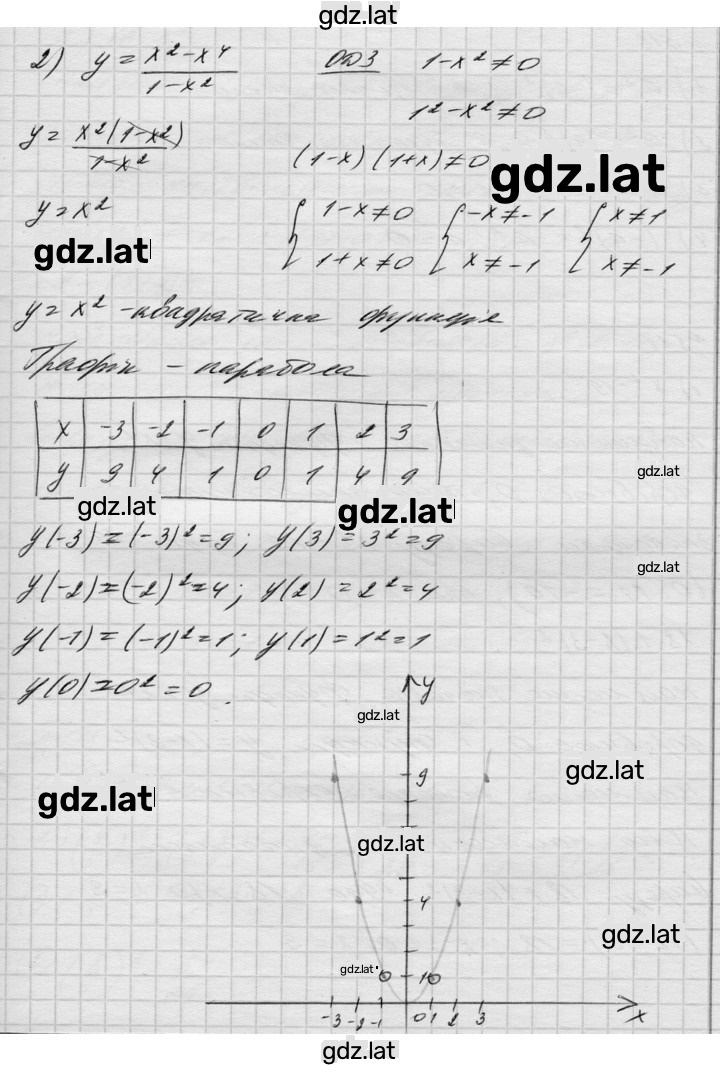 gdz.lat
2) y = x² - x⁴ / 1 - x² ОДЗ 1 - x² ≠ 0
1² - x² ≠ 0
y = x²(1 - x²) / 1 - x² (1 - x)(1 + x) ≠ 0
gdz.lat
y = x² { 1 - x ≠ 0 { -x ≠ -1 { x ≠ 1
1 + x ≠ 0 x ≠ -1 x ≠ -1
gdz.lat
y = x² - квадратична функція
Графік - парабола
x -3 -2 -1 0 1 2 3
y 9 4 1 0 1 4 9
gdz.lat
gdz.lat gdz.lat
y(-3) = (-3)² = 9; y(3) = 3² = 9
gdz.lat
y(-2) = (-2)² = 4; y(2) = 2² = 4
y(-1) = (-1)² = 1; y(1) = 1² = 1
y(0) = 0² = 0.
y
gdz.lat
9
gdz.lat
gdz.lat
gdz.lat
4
gdz.lat
gdz.lat
1
-3 -2 -1 0 1 2 3 x
gdz.lat